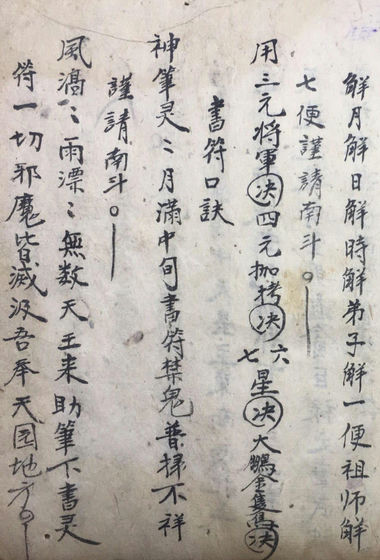 解月解日解時解弟子解一便祖师解
七便謹請南斗。
用三元将軍决四元枷拷决六七星决大鵬金隻鳥决
書符口訣
神筆灵〻月滿中旬書符禁鬼普掃不祥
謹請南斗。
風濤〻雨漂〻無数天王来助筆下書灵
符一切邪魔皆滅汲吾奉天园地方。